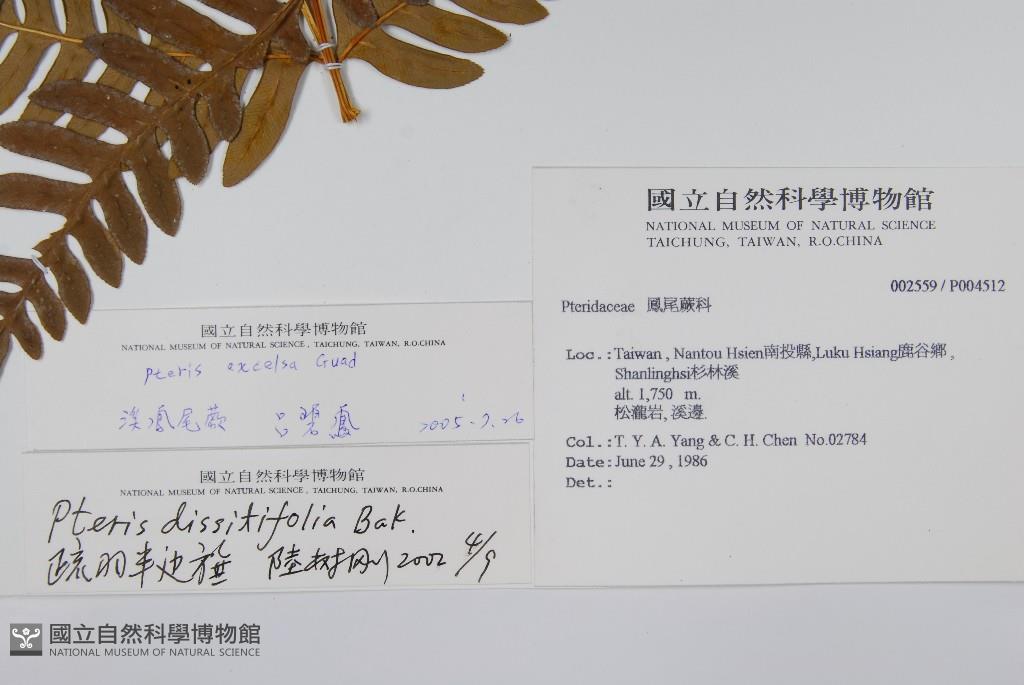 國立自然科學博物館
NATIONAL MUSEUM OF NATURAL SCIENCE
TAICHUNG, TAIWAN, R.O.CHINA
002559 / P004512
Pteridaceae 鳳尾蕨科
Loc.:Taiwan , Nantou Hsien南投縣,Luku Hsiang鹿谷鄉 ,
Shanlinghsi杉林溪
alt. 1,750 m.
松瀧岩, 溪邊.
Col.:T. Y. A. Yang & C. H. Chen No.02784
Date:June 29 , 1986
Det.:
國立自然科學博物館
NATIONAL MUSEUM OF NATURAL SCIENCE , TAICHUNG, TAIWAN, R.O.CHINA
Pteris excelsa Guad
溪鳳尾蕨 呂碧鳳 2005.7.26
國立自然科學博物館
NATIONAL MUSEUM OF NATURAL SCIENCE , TAICHUNG, TAIWAN, R.O.CHINA
Pteris dissitifolia Bak.
疏羽半边旗 陸树刚 2002 4/9
國立自然科學博物館
NATIONAL MUSEUM OF NATURAL SCIENCE